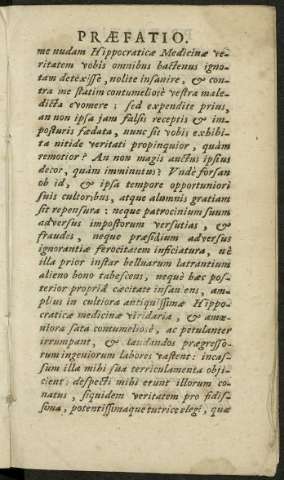 PRÆFATIO.
me nudam Hippocraticæ Medicinæ ve-
ritatem vobis omnibus hactenus igno-
tam detexisse, nolite insanire, & con-
tra me statim contumeliosè vestra male-
dicta evomere; sed expendite prius,
an non ipsa jam falsis receptis & im-
posturis fœdata, nunc sit vobis exhibi-
ta nitide veritati propinquior, quàm
remotior? An non magis auctus ipsius
decor, quàm imminutus? Vndè forsan
ob id, & ipsa tempore opportuniori
suis cultoribus, atque alumnis gratiam
sit repensura: neque patrocinium suum
adversus impostorum versutias, &
fraudes, neque præsidium adversus
ignorantiæ ferocitatem inficiatura, nè
illa prior instar belluarum latrantium
alieno bono tabescens, nequè hæc pos-
terior propriâ cæcitate insaniens, am-
plius in cultiora antiquissimæ Hippo-
craticæ medicinæ viridaria, & amœ-
niora sata contumeliosè, ac petulanter
irrumpant, & laudandos prægresso-
rum ingeniorum labores vastent: incas-
sum illa mihi sua terriculamenta obji-
cient: despecti mihi erunt illorum co-
natus, siquidem veritatem pro fidis-
sima, potentissimaque tutrice elegi, quæ